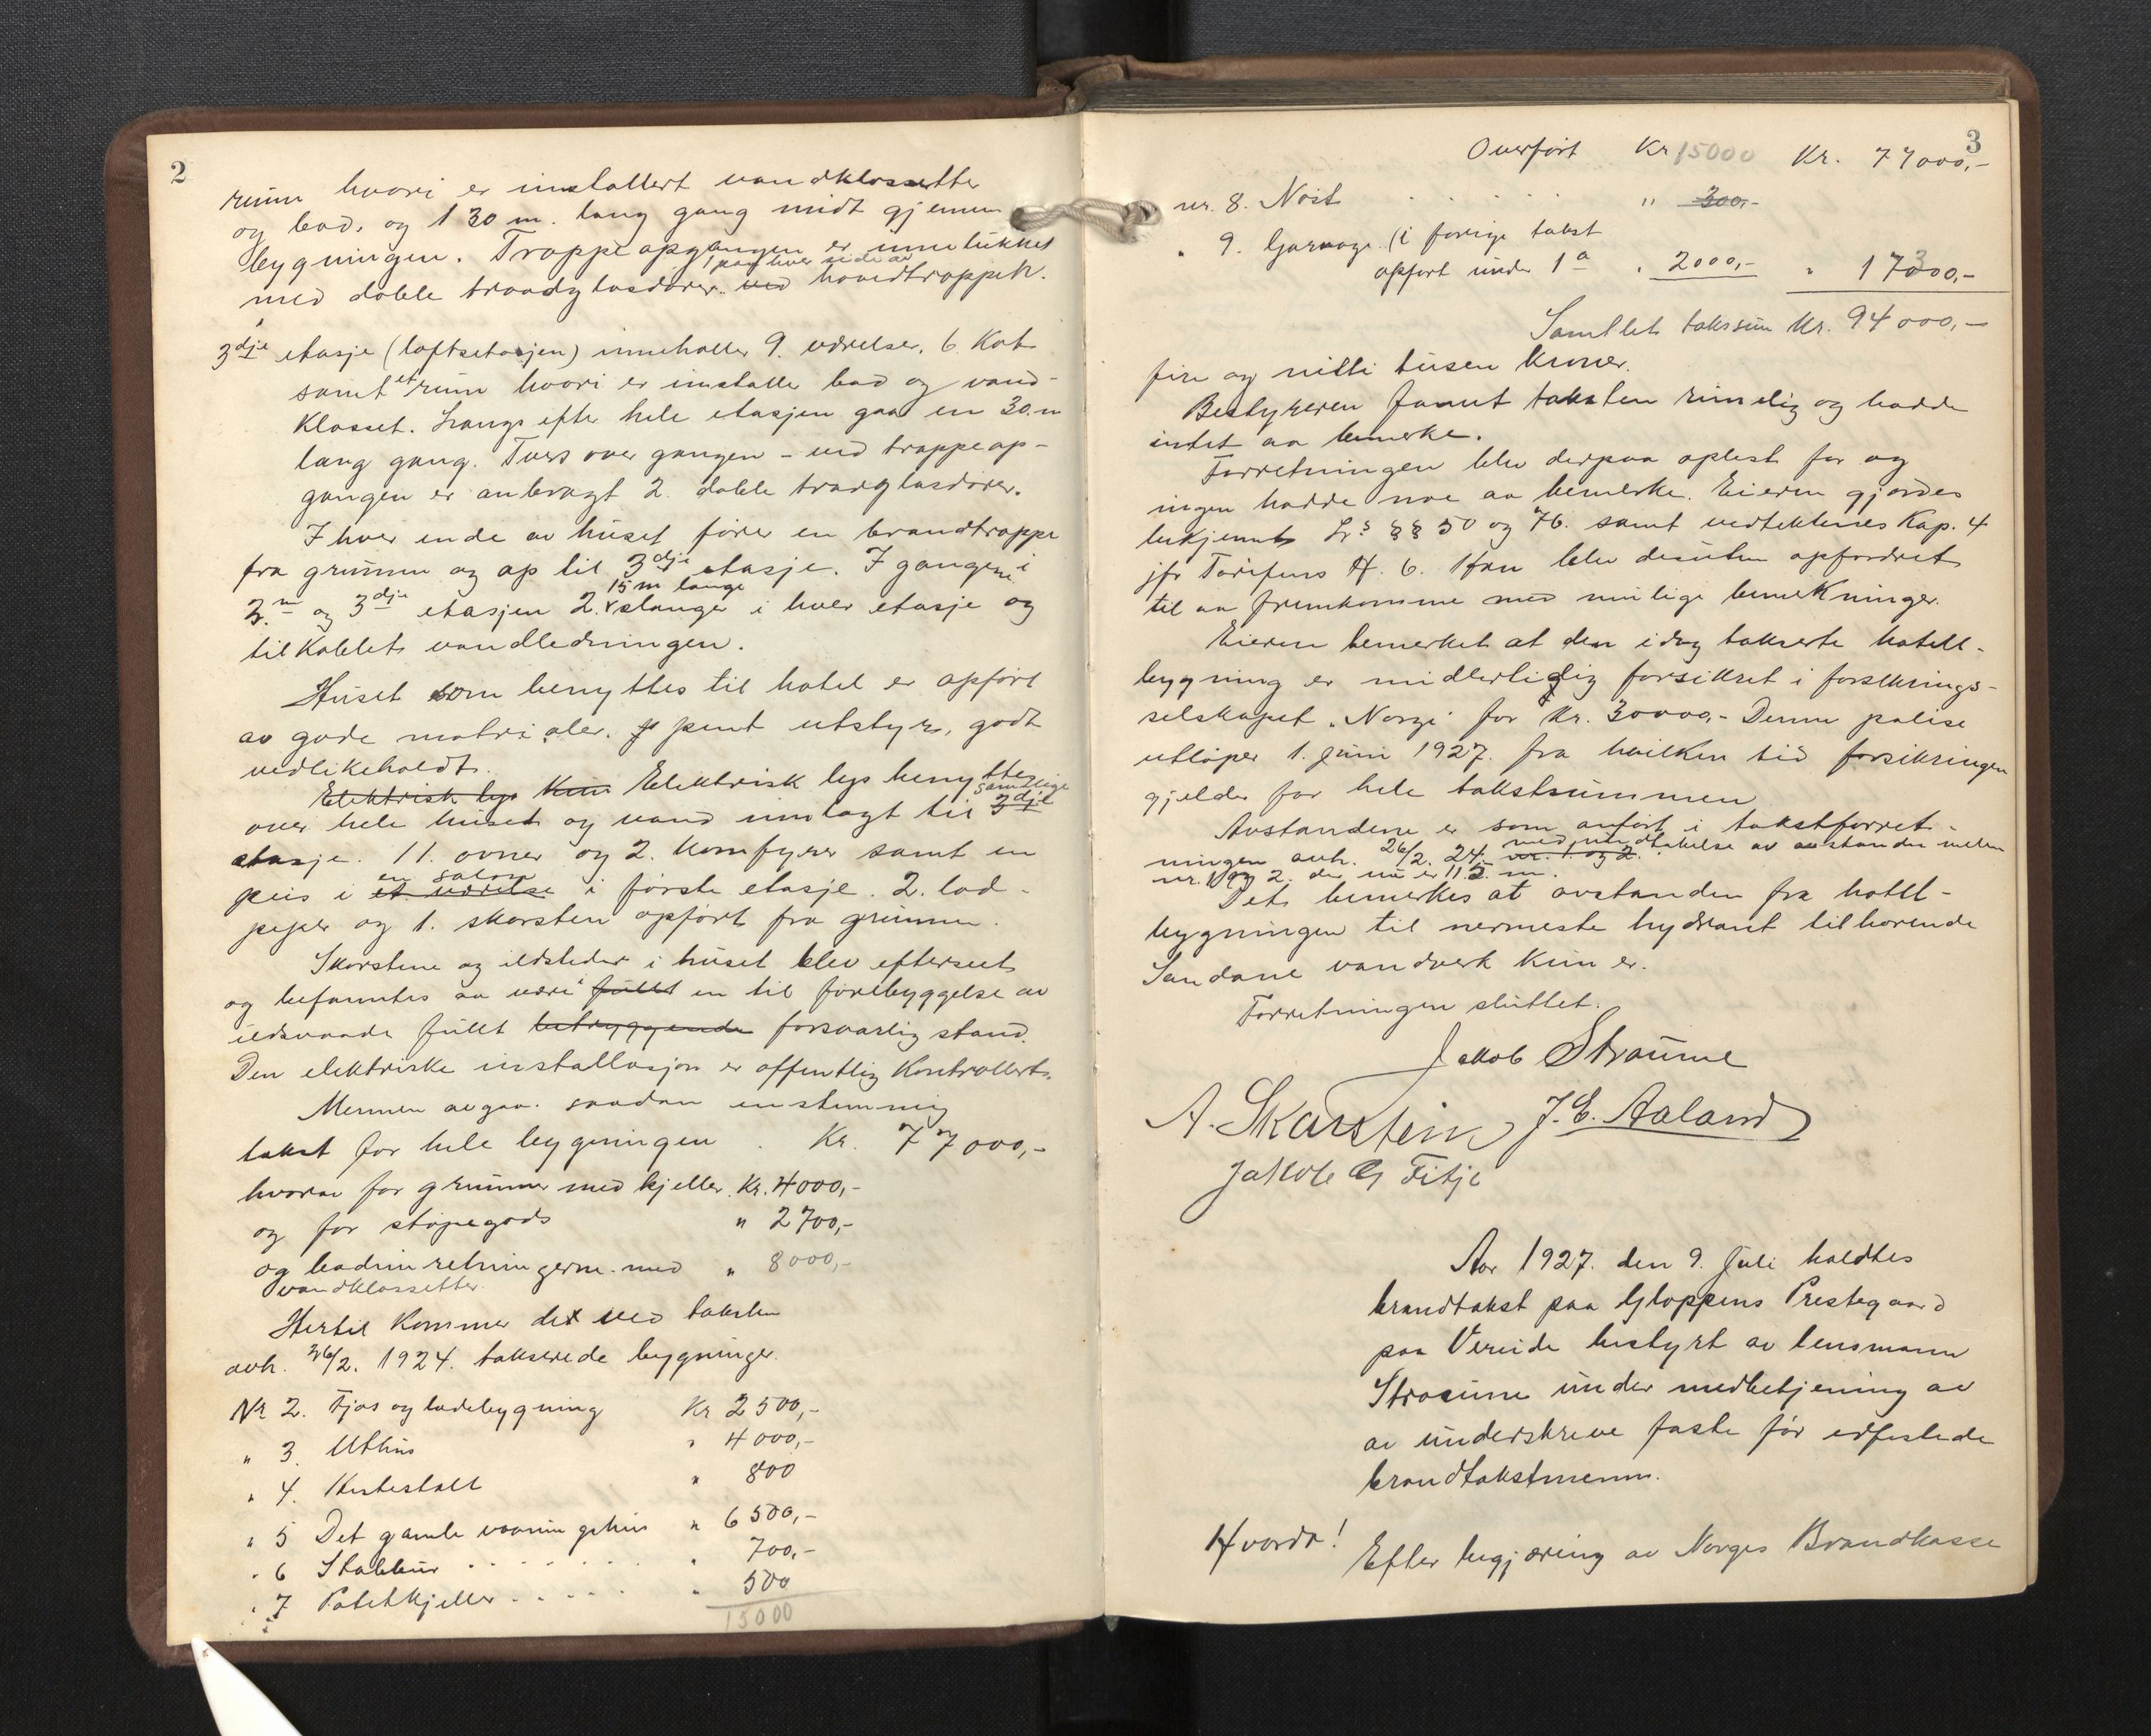 2
rum hvori er installert vandklossette
og bad, og 1 30 m. lang gang midt gjennem
bygningen. Trappeopgangen er innelukket
1 paa hver side av
med doble traadglasdører. ved hovedtroppen.
3dje etasje (loftsetasjen) inneholler 9. værelser, 6 Kot
samt et rum hvori er installe bad og vand-
Klosset. Langs efter hele etasjen gaar en 30 m
lang gang. Tvers over gangen - ved trappeop-
gangen er anbragt 2. doble traadglasdører.
I hver ende av huset fører en brandtrappe
fra grunnen og op til 3dje etasje. I gangene i
15 m lange
2.n og 3dje etasjen 2. slanger i hver etasje og
tilkoblet vandledningen.
Huset som benyttes til hotel er opført
av gode matrialer. pent utstyr, godt
vedlikeholdt.
Elektrisk lys Kun Elektrisk lys benyttes
samtlige
over hele huset og vand innlagt til 3dje
etasje. 11. ovner og 2. Komfyrer samt en
en salon
peis i et værelse i første etasje. 2. lod-
piper og 1. skorsten opført fra grunnen.
Skorstene og ildsteder i huset blev efterseet
og befanntes aa være fullt en til forebyggelse av
ildsvaade fullt betryggende forsvarlig stand.
Den elektriske installasjon er offentlig Kontrollert.
Mennen avgav saadan enstemmig
takst for hele bygningen . Kr. 77000,-
hvorav for grunnmur med kjeller. Kr. 4000,-
og for støpegods " 2700,-
og badinnretningerne med " 8000,-
vandklossetter.
Hertil Kommer det ved taksten
avh. 26/2. 1924. takserede bygninger.
Nr 2. Fjøs og ladebygning Kr 2500,-
" 3. Uthus " 4000,-
" 4. Hestestall " 800
" 5 Det gamle vaaningshus " 6500,-
" 6 Stabbur . . . . . " 700,-
" 7 Potetkjeller . . . . " 500
15000
3
Overført Kr 15000 Kr. 77000,-
nr. 8. Nøst . . . . . " 300,-
" 9. Garage (i forrige takst
opført under 1a " 2000,- " 17000,-
Samllet takssum Kr. 94000,-
fire og nitti tusen kroner.
Bestyreren fannt taksten rimelig og hadde
intet aa bemerke.
Forretningen blev derpaa oplest for og
ingen hadde noe aa bemerke. Eieren gjordes
bekjennt Ls §§ 50 og 76. samt vedtektenes Kap. 4
jfr Tarifens A. 6. Han blev desuten opfordret
til aa fremkomme med mulige bemerkninger.
Eieren bemerket at den idag takserte hotell-
bygning er midlertidig forsikret i forsikrings-
selskapet "Norge" for Kr. 30000,- Denne polise
utløper 1. juni 1927. fra hvilken tid forsikringen
gjelder for hele takstsummen
Avstandene er som anført i takstforret-
med undtakelse av avstanden mellem
ningen avh. 26/2. 24. nr. 1. og 2.
nr. 1 og 2. der nu er 112. m.
Det bemerkes at avstanden fra hotel-
bygningen til nermeste hydrant tilhørende
Sandane vandverk kun er.
Forretningen sluttet.
Jakob Straume
A. Skarstein J. E. Aaland
Jakob G Fitje
Aar 1927. den 9. Juli holdtes
brandtakst paa Gloppens Prestegaard
paa Vereide bestyrt av lensmann
Straume under medbetjening av
av underskreve faste før edfestede
brandtakstmenn.
Hvorda! Efter begjæring av Norges Brandkasse